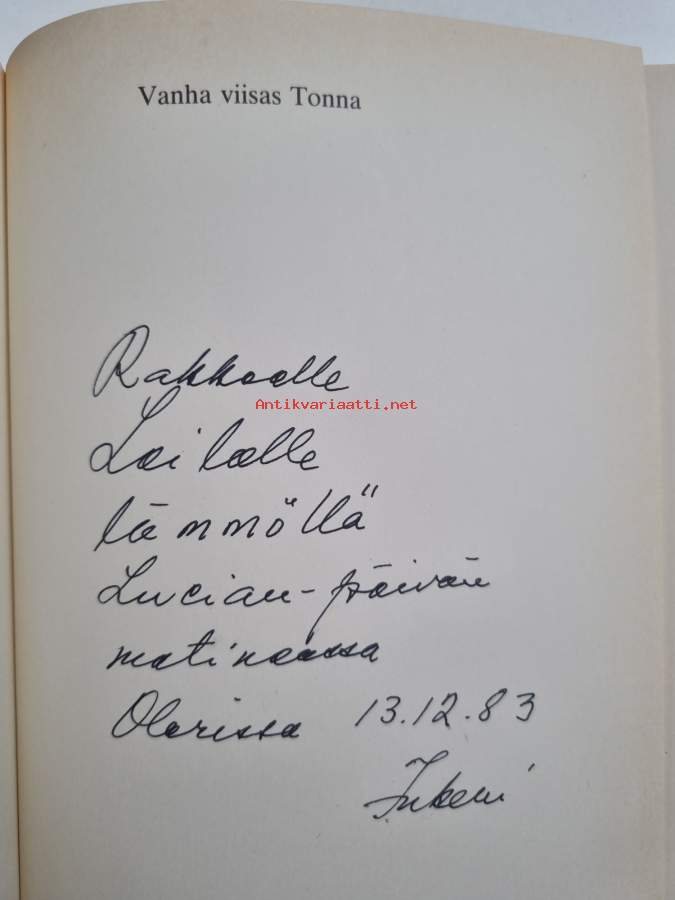 Vanha viisas Tonna
Rakkaalle
Antikvariaatti.net
Lailalle
lämmöllä
Lucian-päivän
matineassa
Olarissa 13.12.83
Inkeri